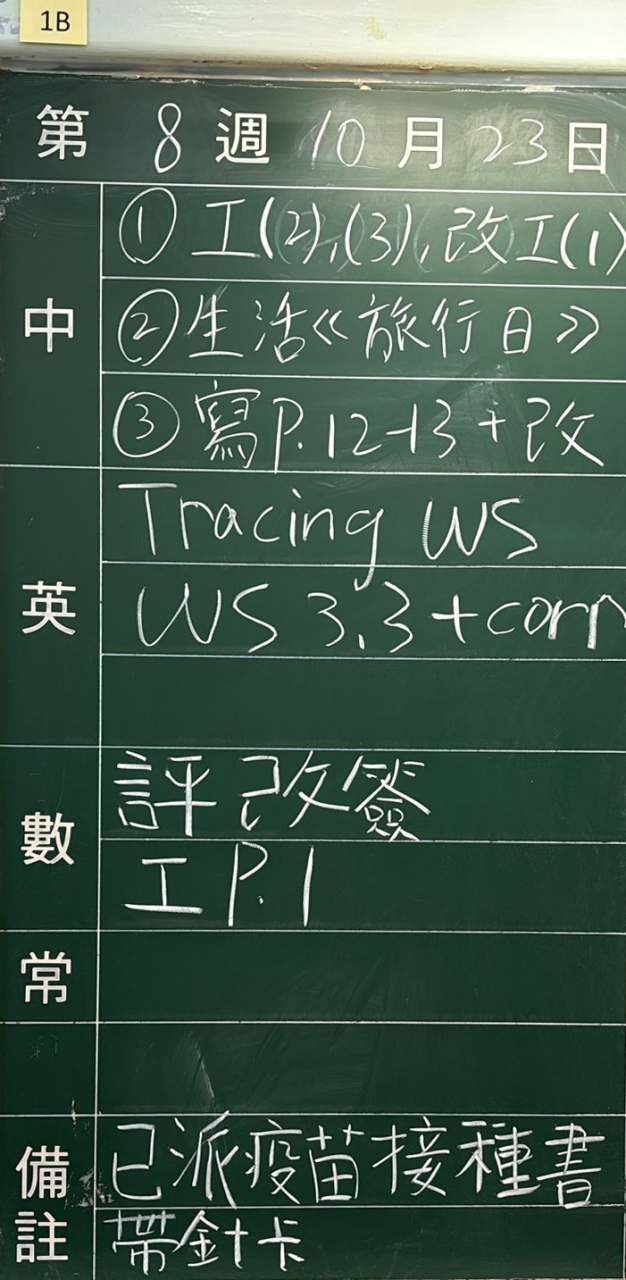 1B
第 8 週 10 月 23 日
中
① 工(2),(3),改工(1)
② 生活《旅行日》
③ 寫P.12-13+改
英
Tracing WS
WS 3.3 +corr
數
評改簽
工 P.1
常
備註
已派疫苗接種書
帶針卡